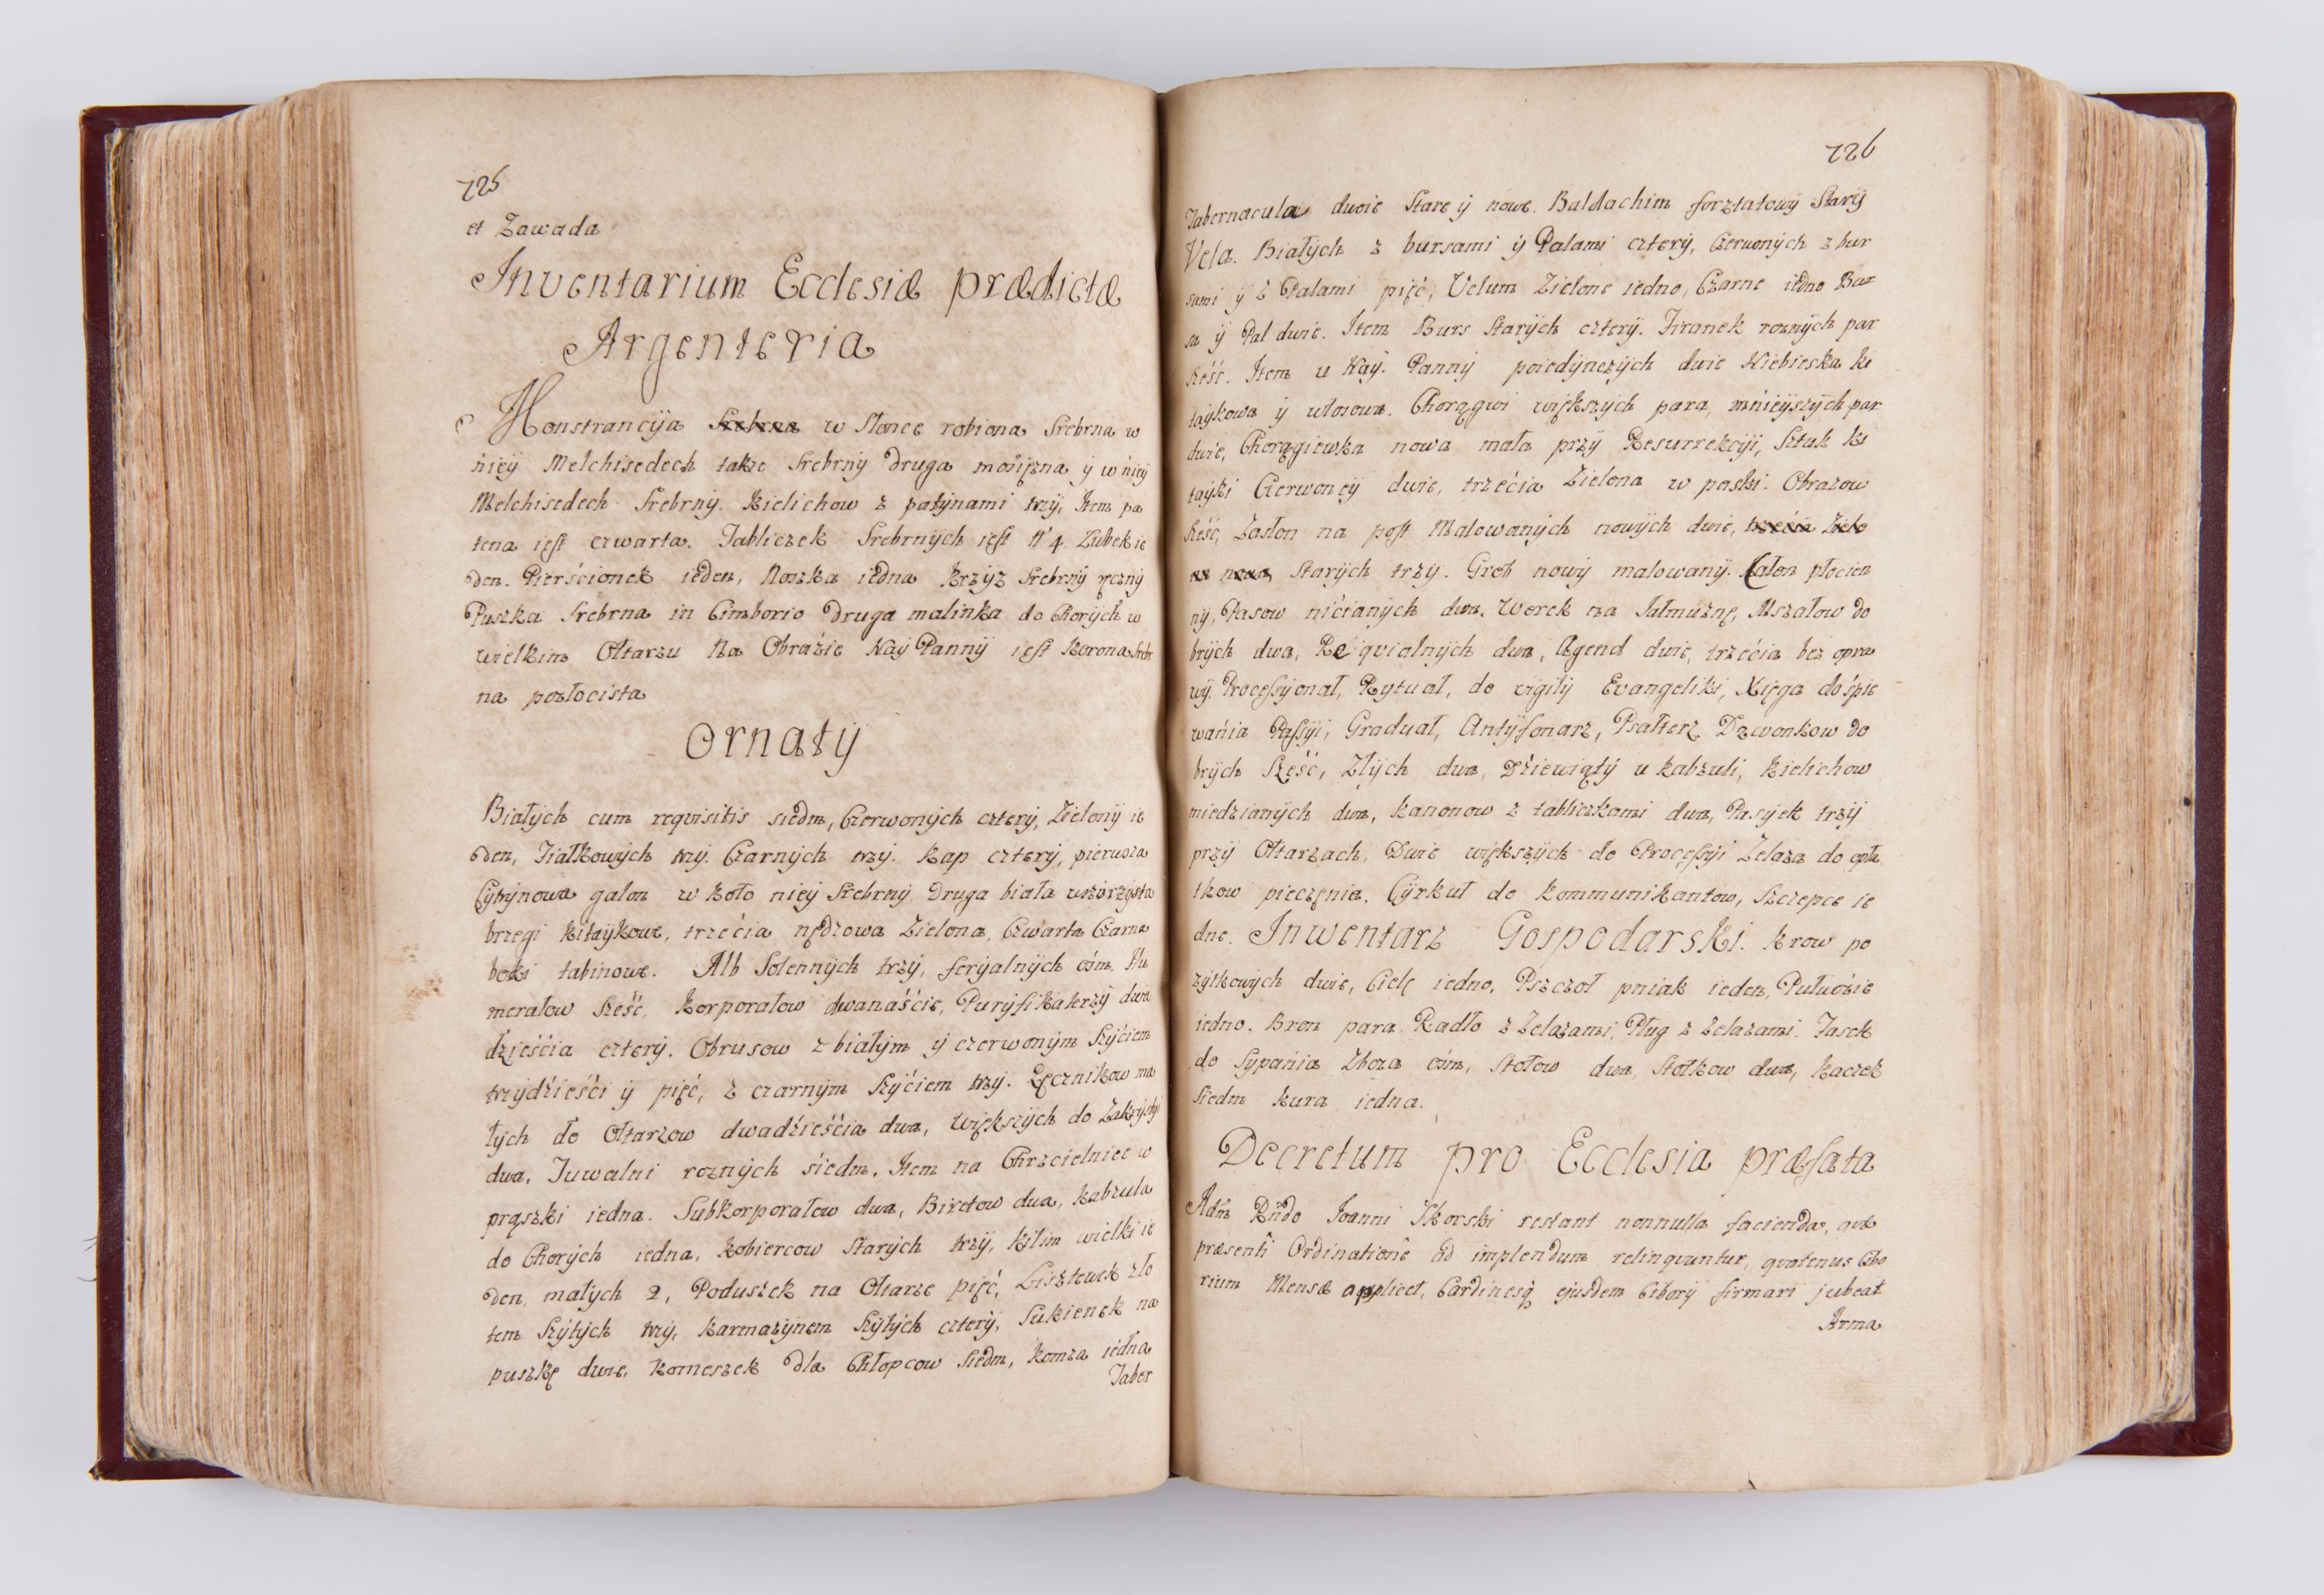 725
et Zawada
Inventarium Ecclesiæ prædictæ
Argenteria
Monstrancÿia Srebrna w Słonce robiona Srebrna w
nieÿ Melchisedech takze Srebrnÿ druga mosięzna ÿ w nieÿ
Melchisedech Srebrnÿ. Kielichow z patÿnami trzÿ, Item pa
tena iest czwarta. Tabliczek Srebrnÿch iest Nº 4. Zubek ie
den. Pierścionek ieden, Noszka iedna Krzÿz Srebrnÿ ręcznÿ
Puszka Srebrna in Cimborio druga malinka do Chorÿch w
wielkim Ołtarzu Na Obraźie Naÿ Pannÿ iest Korona Srebr
na pozłocista
Ornatÿ
Białÿch cum reqvisitis siedm, Czerwonÿch czterÿ, Zielonÿ ie
den, Fiałkowÿch trzÿ. Czarnÿch trzÿ. Kap czterÿ, pierwsza
Cÿtrÿnowa galon w koło nieÿ Srebrnÿ, Druga biała wzorzÿsta
brzegi kitaÿkowe, trzećia nędzowa Zielona, Czwarta Czarna
boki tabinowe. Alb Solennÿch trzÿ, ferÿalnÿch ośm. Hu
merałow sześć, Korporałow dwanaśćie, Purÿfikaterzÿ dwa
dźieśćia czterÿ. Obrusow z białÿm ÿ czerwonÿm szÿćiem
trzÿdźieśći ÿ pięć, z czarnÿm szÿćiem trzÿ. Ręcznikow ma
łÿch do Ołtarzow dwadźieśćia dwa, Większÿch do Zakrÿstÿi
dwa, Tuwalni roznÿch śiedm. Item na Chrzcielnice w
prąszki iedna. Subkorporałow dwa, Biretow dwa, Kabzula
do Chorÿch iedna, Kobiercow Starÿch trzÿ, Kilim wielki ie
den, małÿch 2, Poduszek na Ołtarze pięć, Lisztewek zło
tem szÿtÿch trzÿ, karmazÿnem szÿtÿch czterÿ, Sukienek na
puszkę dwie, Komeszek dla Chłopcow siedm, Komza iedna
Taber
726
Tabernacula dwoie Stare ÿ nowe. Baldachim forsztatowÿ Starÿ
Vela. Białÿch z bursami ÿ Palami czterÿ, Czerwonÿch z bur
sami ÿ z Palami pięć, Velum Zielone iedno, Czarne iedno Bur
sa ÿ Pal dwie. Item Burs Starÿch czterÿ. Firanek roznÿch par
sześć. Item u Naÿ. Pannÿ poiedÿnczÿch dwie Niebieska ki
taÿkowa ÿ włosowa. Chorągwi większÿch para, mnieÿszÿch par
dwie, Chorągiewka nowa mała przÿ Resurrekcÿi, Sztuk ki
taÿki Czerwoneÿ dwie, trzećia Zielona w paski. Obrazow
sześć, Zasłon na post Malowanÿch nowÿch dwie, trzećia Zielo
na nowa Starÿch trzÿ. Grob nowÿ malowanÿ. Całon płocien
nÿ, Pasow nićianÿch dwa. Worek na Jałmuznę, Mszałow do
brÿch dwa, Reqvialnÿch dwa, Agend dwie, trzećia bez opra
wÿ. Processÿonał, Rytuał, do vigilÿ Evangeliki, Xięga do śpie
wańia Passÿi, Graduał, Antÿfonarz, Psałterz Dzwonkow do
brÿch sześć, Złÿch dwa, Dźiewiątÿ u kabzuli, Kielichow
miedzianÿch dwa, Kanonow z tabliczkami dwa, Pasÿek trzÿ
przÿ Ołtarzach, Dwie większÿch do Processÿi Zelaza do opła
tkow pieczęnia. Cÿrkuł do Kommunikantow, Szczepce ie
dne. Inwentarz Gospodarski. Krow po
zÿtkowych dwie, Cielę iedno, Pszczoł pniak ieden, Pułwozie
iedno. Bron para Radło z Zelazami, Pług z Zelazami. Fasek
do Sypańia Zboza ośm, Stołow dwa, Stołkow dwa, Kaczek
siedm kura iedna.
Decretum pro Ecclesia præfata
Adm̃ Rñdo Ioanni Skorski restant nonnulla facienda, qvæ
præsenti Ordinatione ad implendum relinqvuntur, qvatenus Cibo
rium Mensæ applicet, Cardinesq̃ ejusdem Ciborÿ firmari jubeat
Arma